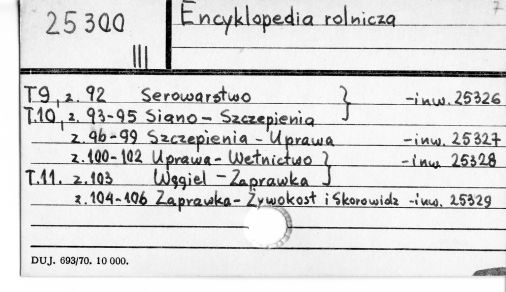 7
25300
III
Encyklopedia rolnicza
T.9, z. 92 Serowarstwo } -inw. 25326
T.10, z. 93-95 Siano - Szczepienia
z. 96-99 Szczepienia - Uprawa -inw. 25327
z. 100-102 Uprawa - Wetnictwo } -inw. 25328
T.11. z. 103 Węgiel - Zaprawka
z. 104-106 Zaprawka - Żywokost i Skorowidz -inw. 25329
DUJ. 693/70. 10 000.